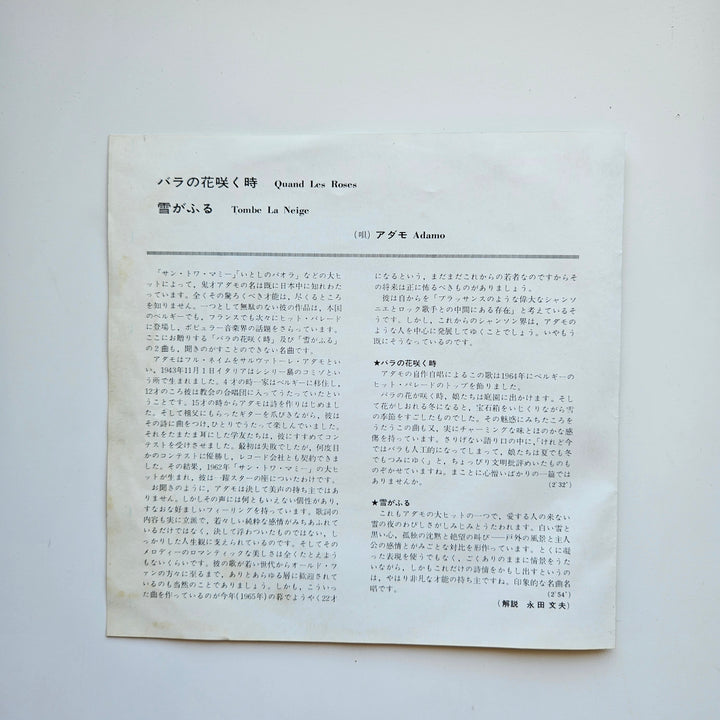 バラの花咲く時 Quand Les Roses
雪がふる Tombe La Neige
(唄) アダモ Adamo
「サン・トワ・マミー」「いとしのパオラ」などの大ヒ
ットによって、鬼才アダモの名は既に日本中に知れわた
っています。全くその驚ろくべき才能は、尽くるところ
を知りません。一つとして無駄のない彼の作品は、本国
のベルギーでも、フランスでも次々にヒット・パレード
に登場し、ポピュラー音楽界の話題をさらっています。
ここにお贈りする「バラの花咲く時」及び「雪がふる」
の2曲も、聞きのがすことのできない名曲です。
アダモはフル・ネイムをサルヴァトーレ・アダモとい
い、1943年11月1日イタリアはシシリー島のコミソとい
う所で生まれました。4才の時一家はベルギーに移住し、
12才のころ彼は教会の合唱団に入ってうたっていたとい
うことです。15才の時からアダモは詩を作りはじめまし
た。そして祖父にもらったギターを爪びきながら、彼は
その詩に曲をつけ、ひとりでうたって楽しんでいました。
それをたまたま耳にした学友たちは、彼にすすめてコン
テストを受けさせました。最初は失敗でしたが、何度目
かのコンテストに優勝し、レコード会社とも契約できま
した。その結果、1962年「サン・トワ・マミー」の大ヒ
ットが生まれ、彼は一躍スターの座についたわけです。
お聞きのように、アダモは決して美声の持ち主ではあ
りません。しかしその声には何ともいえない個性があり、
すなおな好ましいフィーリングを持っています。歌詞の
内容も実に立派で、若々しい純粋な感情がみちあふれて
いるだけではなく、決して浮わついたものではない、し
っかりした人生観に支えられているのです。そしてその
メロディーのロマンティックな美しさは全くたとえよう
もないくらいです。彼の歌が若い世代からオールド・フ
ァンの方々に至るまで、ありとあらゆる層に歓迎されて
いるのも当然のことでありましょう。しかも、こういっ
た曲を作っているのが今年(1965年)の暮でようやく22才
になるという、まだまだこれからの若者なのですからそ
の将来は正に怖るべきものがありましょう。
彼は自からを「ブラッサンスのような偉大なシャンソ
ニエとロック歌手との中間にある存在」と考えているそ
うです。しかし、これからのシャンソン界は、アダモの
ような人を中心に発展してゆくことでしょう。いやもう
既にそうなっているのです。
★バラの花咲く時
アダモの自作自唱によるこの歌は1964年にベルギーの
ヒット・パレードのトップを飾りました。
バラの花が咲く時、娘たちは庭園に出かけます。そし
て花がしおれる冬になると、宝石箱をいじくりながら雪
の季節をすごしたものでした。その魅惑にみちたころを
うたうこの曲も又、実にチャーミングな味とほのかな感
傷を持っています。さりげない語り口の中に、「けれど今
ではバラも人工的になってしまって、娘たちは夏でも冬
でもつみにゆく」と、ちょっぴり文明批評めいたものも
のぞかせていますね。まことに心憎いばかりの一篇では
ありませんか。 (2′32″)
★雪がふる
これもアダモの大ヒットの一つで、愛する人の来ない
雪の夜のわびしさがしみじみとうたわれます。白い雪と
黒い心、孤独の沈黙と絶望の叫び──戸外の風景と主人
公の感情とがみごとな対比を形作っています。とくに凝
った表現を使うでもなく、ごくありのままに情景をうた
いながら、しかもこれだけの詩情をかもし出すというの
は、やはり非凡な才能の持ち主ですね。印象的な名曲名
唱です。 (2′54″)
(解説 永田文夫)